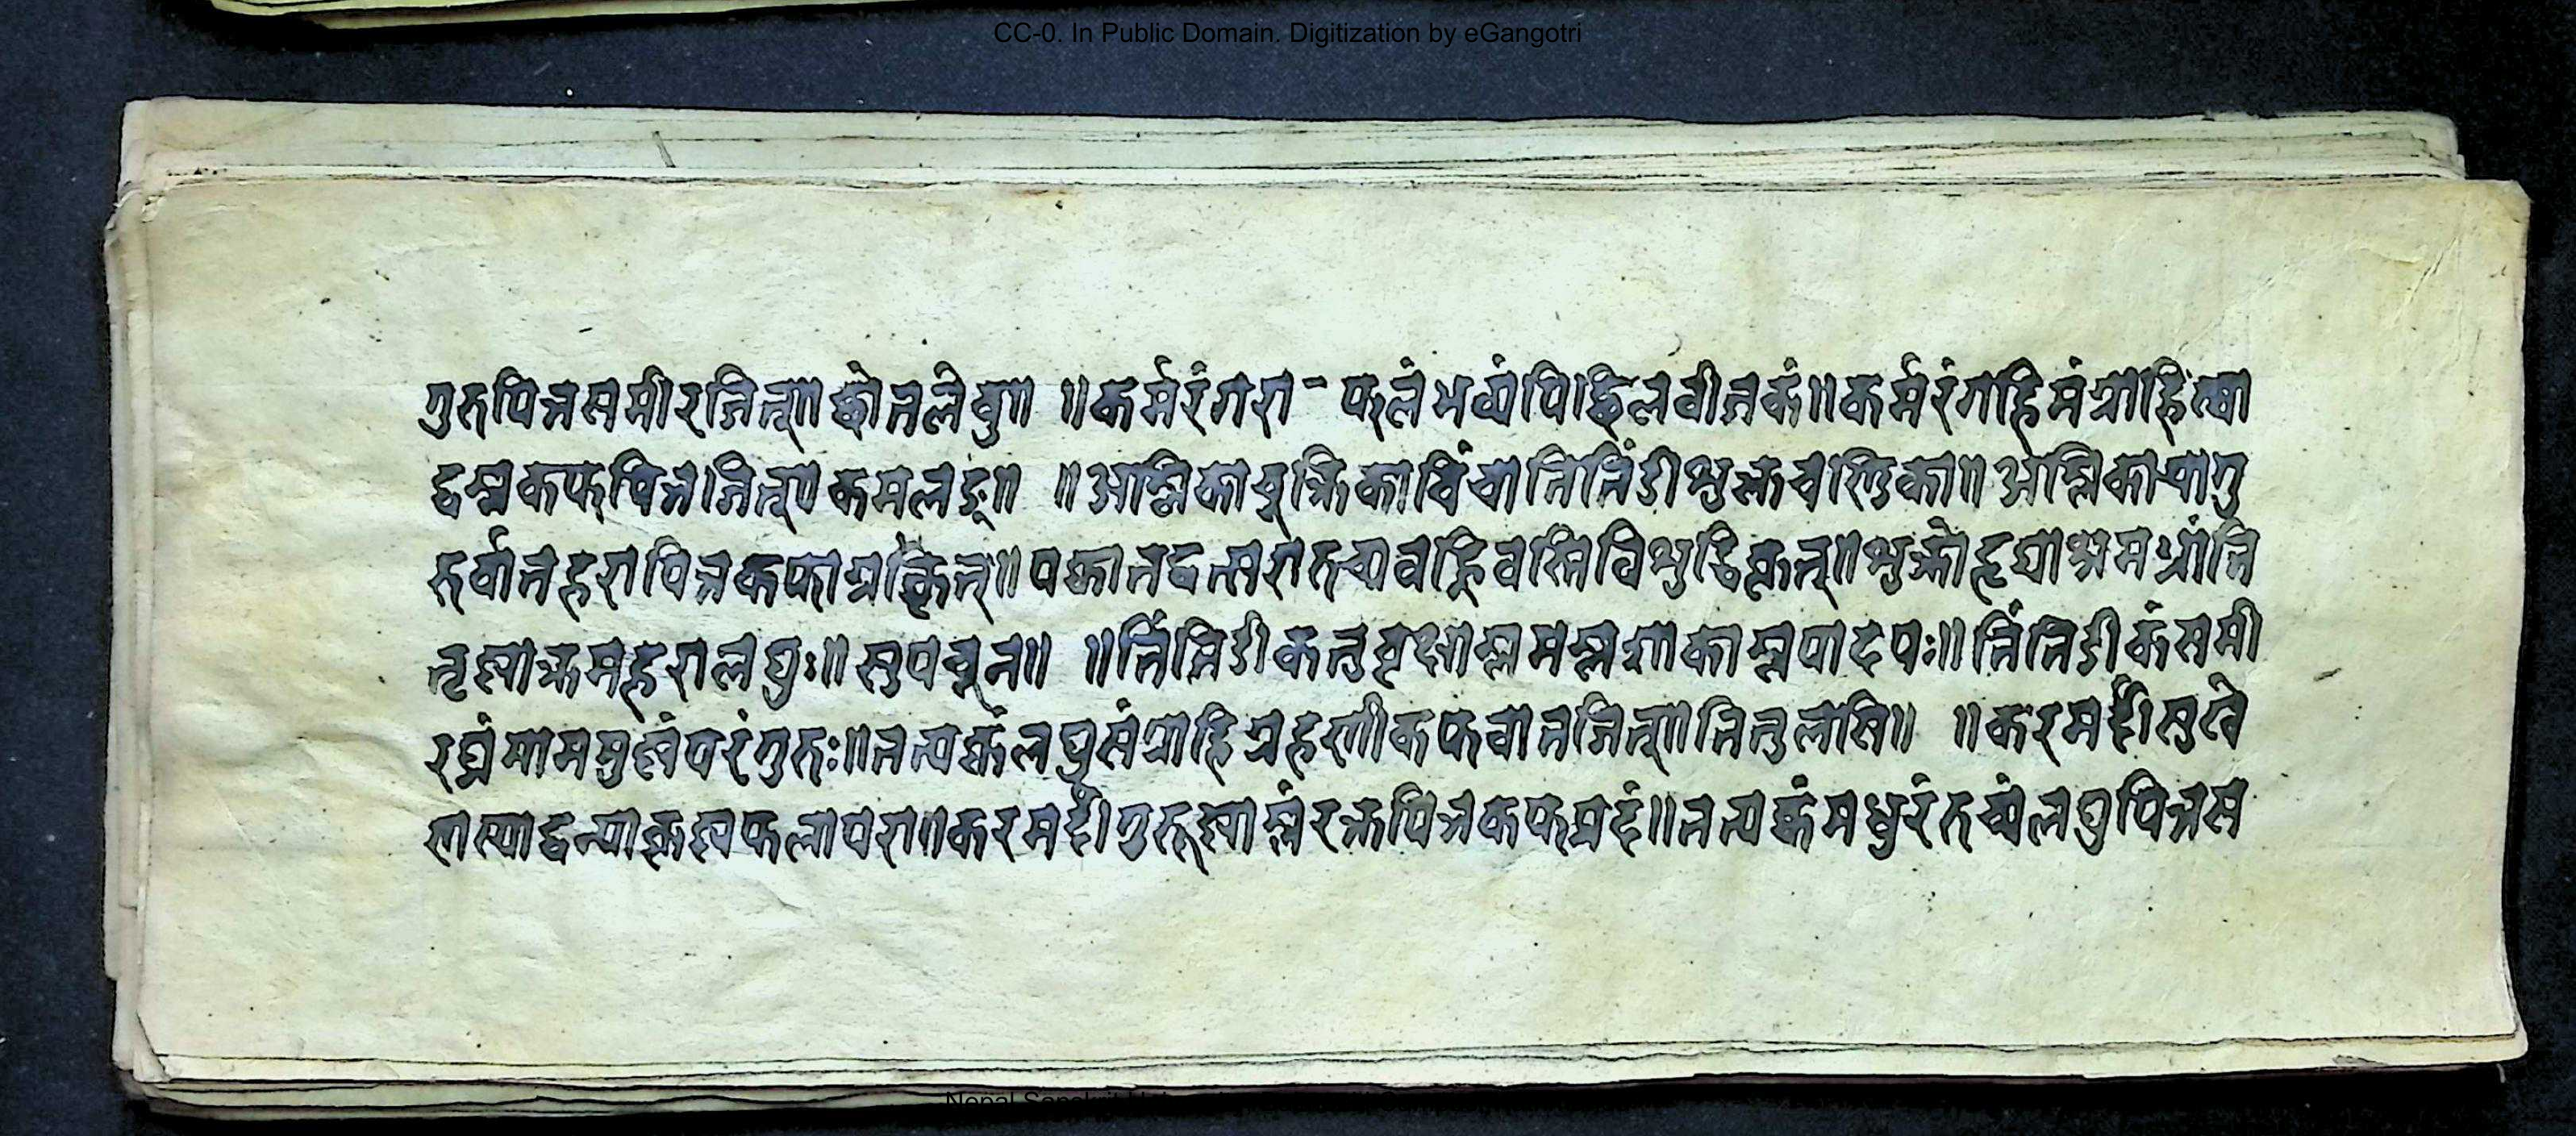 CC-0. In Public Domain. Digitization by eGangotri
गुरुपित्तसमीरजित्॥ छोतलेबु॥ ॥कर्मरंगरा - फलंभव्यंपिच्छिलवीजकं॥कर्मरंगहिमंग्राहित्वा
द्वम्लकफपित्तजित्॥कमलङू॥ ॥आम्लिकाचुक्रिकाचिंचातिन्तिंडीशुक्तचण्डिका॥अम्लिकायागु
रुर्वातहरापित्तकफास्रकृत्॥पक्वातद्वत्सरारुच्यावह्निवस्तिविशुद्धिकृत्॥शुष्काहृद्याश्रमभ्रांति
तृष्णाक्लमहरालघुः॥सुपवून॥ ॥तिंतिडीकन्तुवृक्षाम्लमम्लशाकाम्लपादपः॥तिंतिडीकंसमी
रघ्नंमाममुष्णंपरंगुरुः॥तत्पक्वंलघुसंग्राहिग्रहणीकफवातजित्॥तितुलासि॥ ॥करमर्दीसुषे
णस्याद्वन्याकृष्णफलापरा॥करमर्दीगुरूष्णाम्लंरक्तपित्तकफप्रदं॥तत्पक्वंमधुरंरुच्यंलघुपित्तस